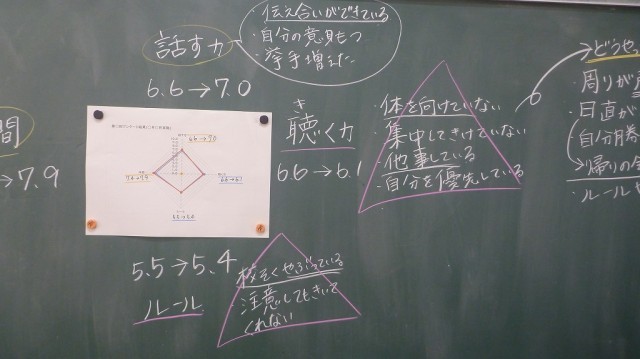 話す力
・伝え合いができている
・自分の意見もつ
・挙手増えた
6.6→7.0
間
→7.9
き
聴く力
6.6→6.1
・体を向けていない
・集中してきけていない
・他事している
・自分を優先している
5.5→5.4
ルール
校そくやぶっている
注意してもきいて
くれない
→どうやっ
・周りが
・日直が
自分勝
→帰りの
・ルール